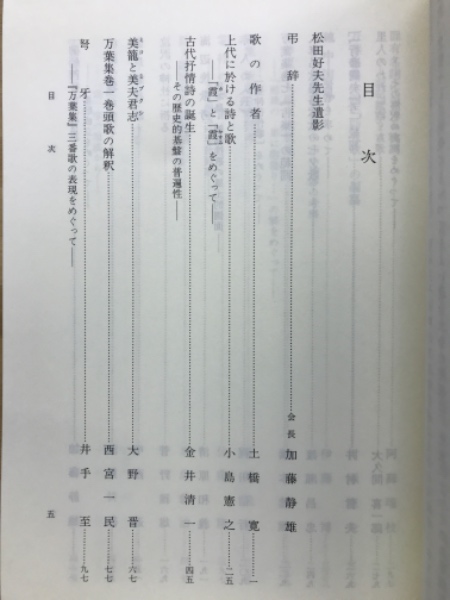 目次
松田好夫先生遺影
弔辞……会長 加藤静雄
歌の作者……土橋寛……一
上代に於ける詩と歌……小島憲之……二五
――「霞」と「霞」をめぐって――
古代抒情詩の誕生……金井清一……四五
――その歴史的基盤の普遍性――
美籠と美夫君志……大野晋……六七
万葉集巻一巻頭歌の解釈……西宮一民……七七
弩牙……井手至……九七
――『万葉集』三番歌の表現をめぐって――
目次
五